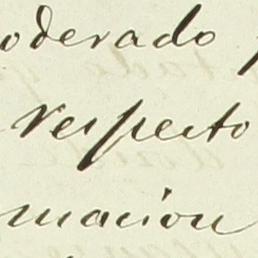 oderado
respecto
macion